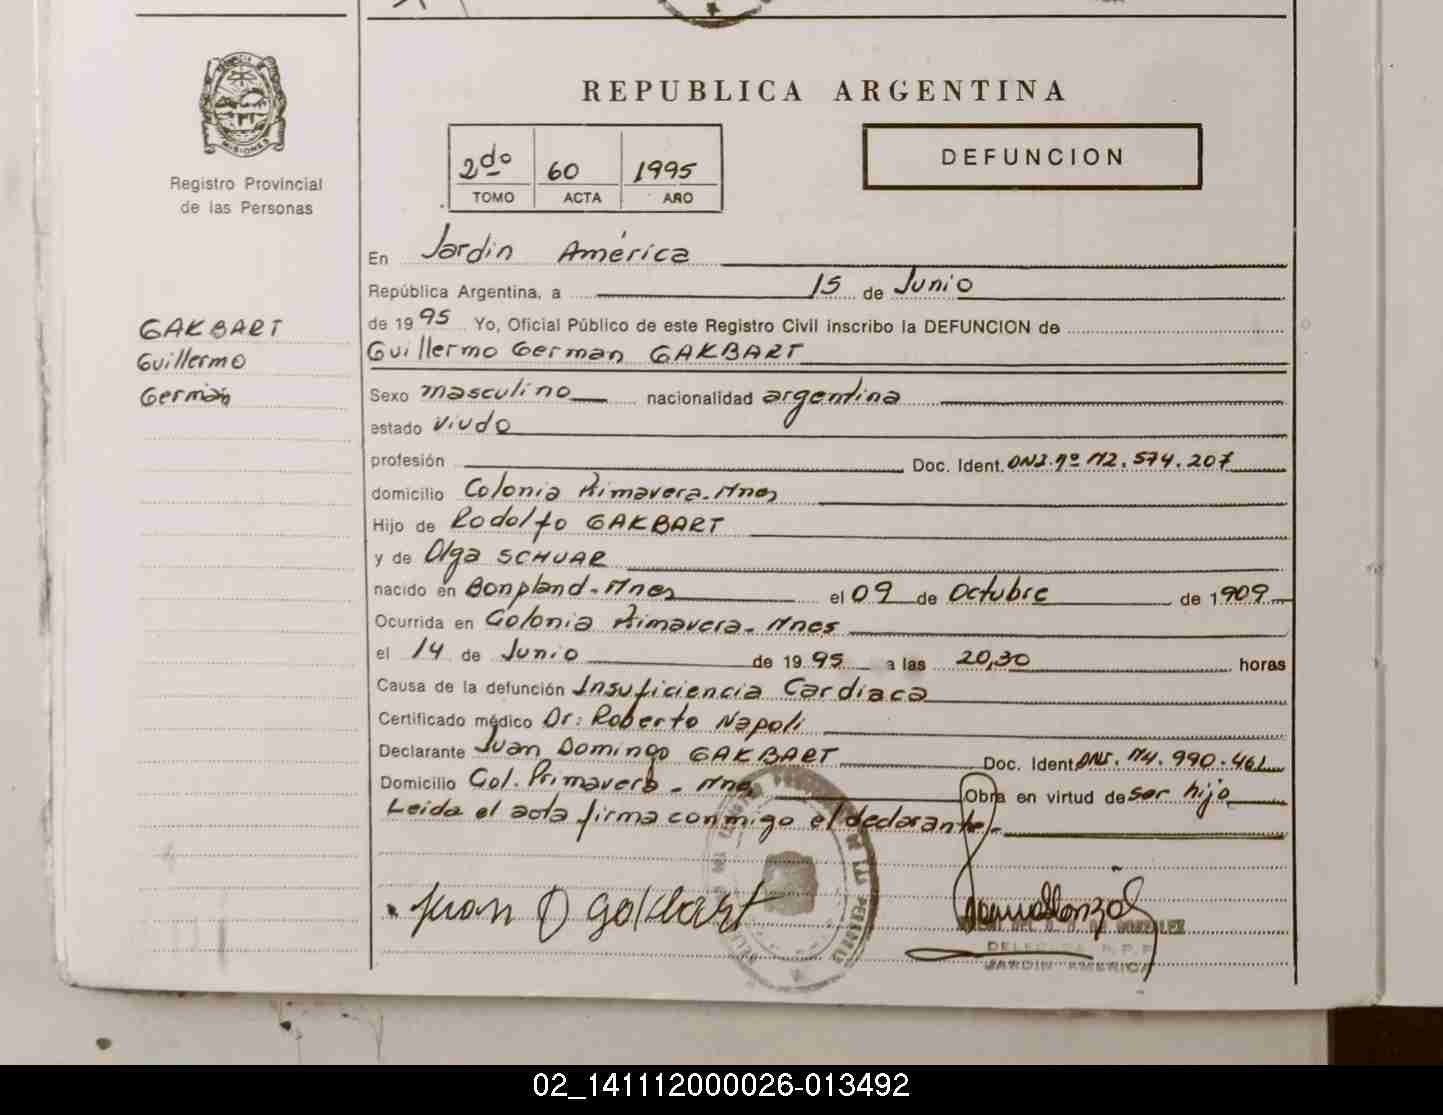 PROVINCIA DE
MISIONES
Registro Provincial
de las Personas
GAKBART
Guillermo
Germán
REPUBLICA ARGENTINA
2do 60 1995
TOMO ACTA AÑO
DEFUNCION
En Jardin América
República Argentina, a 15 de Junio
de 1995 Yo, Oficial Público de este Registro Civil inscribo la DEFUNCION de
Guillermo German GAKBART
Sexo masculino nacionalidad argentina
estado viudo
profesión Doc. Ident. DNI. nº M2.574.207
domicilio Colonia Primavera. Mnes
Hijo de Rodolfo GAKBART
y de Olga SCHUAR
nacido en Bonpland - Mnes el 09 de Octubre de 1909
Ocurrida en Colonia Primavera. Mnes
el 14 de Junio de 1995 a las 20,30 horas
Causa de la defunción Insuficiencia Cardiaca
Certificado médico Dr: Roberto Napoli
Declarante Juan Domingo GAKBART Doc. Ident DNI. M4.990.461
Domicilio Col. Primavera - Mnes Obra en virtud de ser hijo
Leida el acta firma conmigo el declarante.-
Juan D Gakbart
DE GONZALEZ
DELEGADA R.P.P.
JARDIN AMERICA
02_141112000026-013492